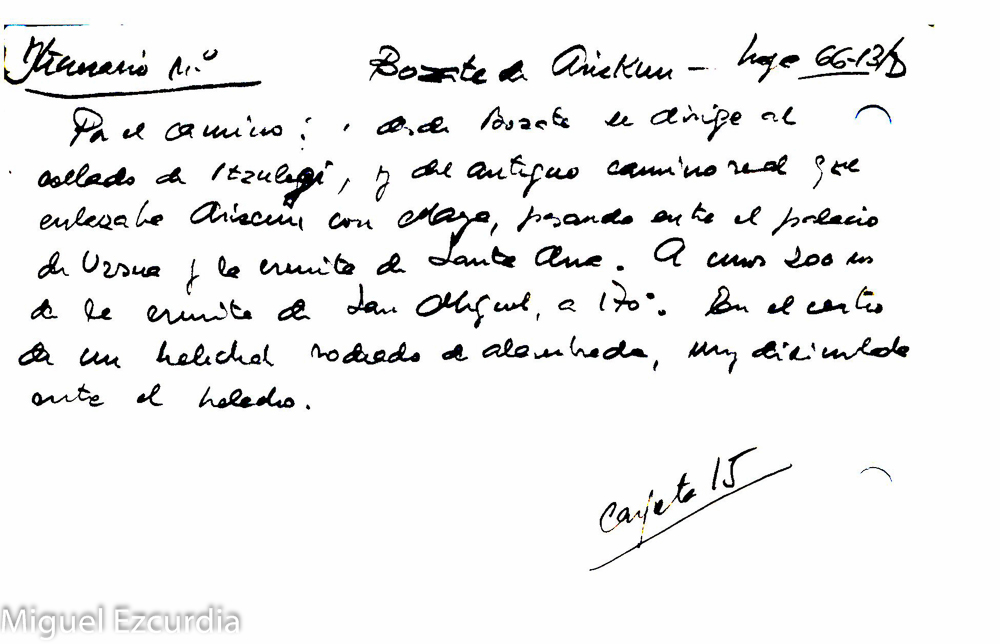 Itinerario N.º Bozate de Ariskun - hoja 66-13/D
Por el camino: desde Bozate se dirige al
collado de Itzulegi, y del antiguo camino real que
enlazaba Ariscun con Maya, pasando entre el palacio
de Ursua y la ermita de Santa Ana. A unos 200 m
de la ermita de San Miguel, a 170°. En el centro
de un helechal rodeado de alambrada, muy disimulada
entre el helecho.
Carpeta 15
Miguel Ezcurdia